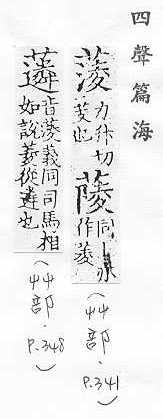 四聲篇海
蔆 力升切蔆也 䔖 同上亦作菱
(艸部．P.341)
音蔆義同司馬相如說菱從遴也
(艸部．P.348)